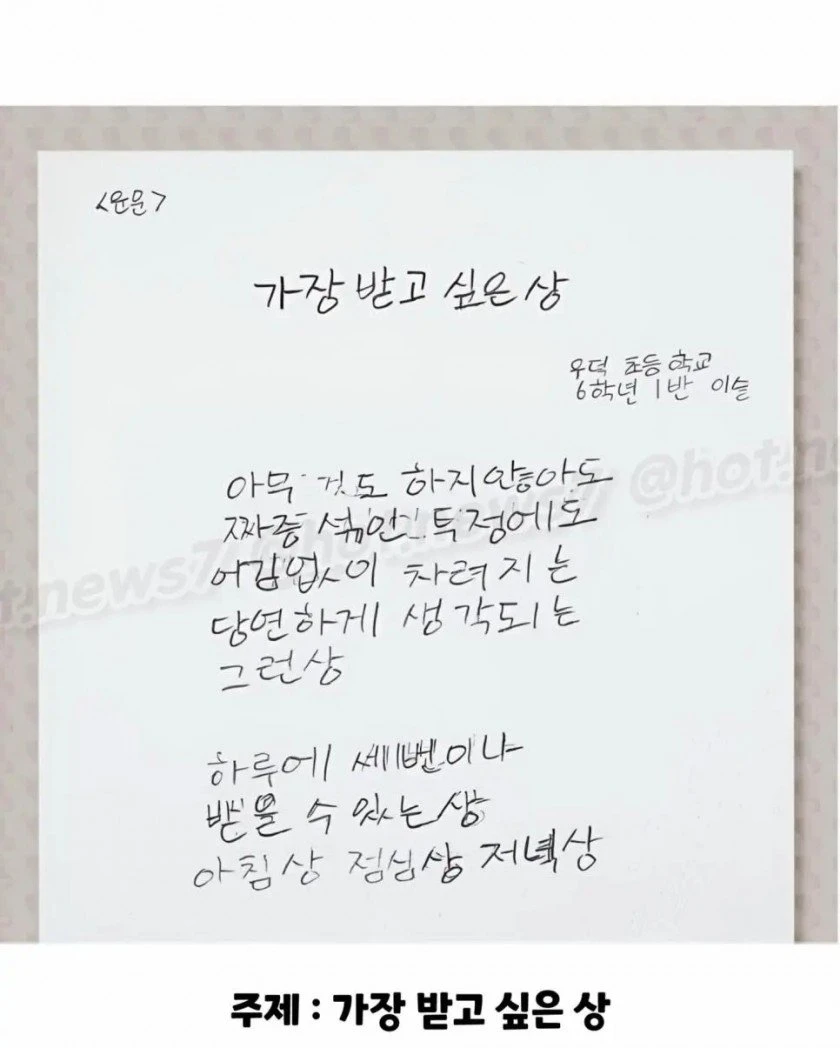 <운문>
가장 받고 싶은 상
우덕 초등학교
6학년 1반 이슬
아무 것도 하지않아도
짜증 섞인 투정에도
어김없이 차려지는
당연하게 생각되는
그런상
하루에 세번이나
받을 수 있는 상
아침상 점심상 저녁상
@hot.news7 @hot.news7
주제 : 가장 받고 싶은 상